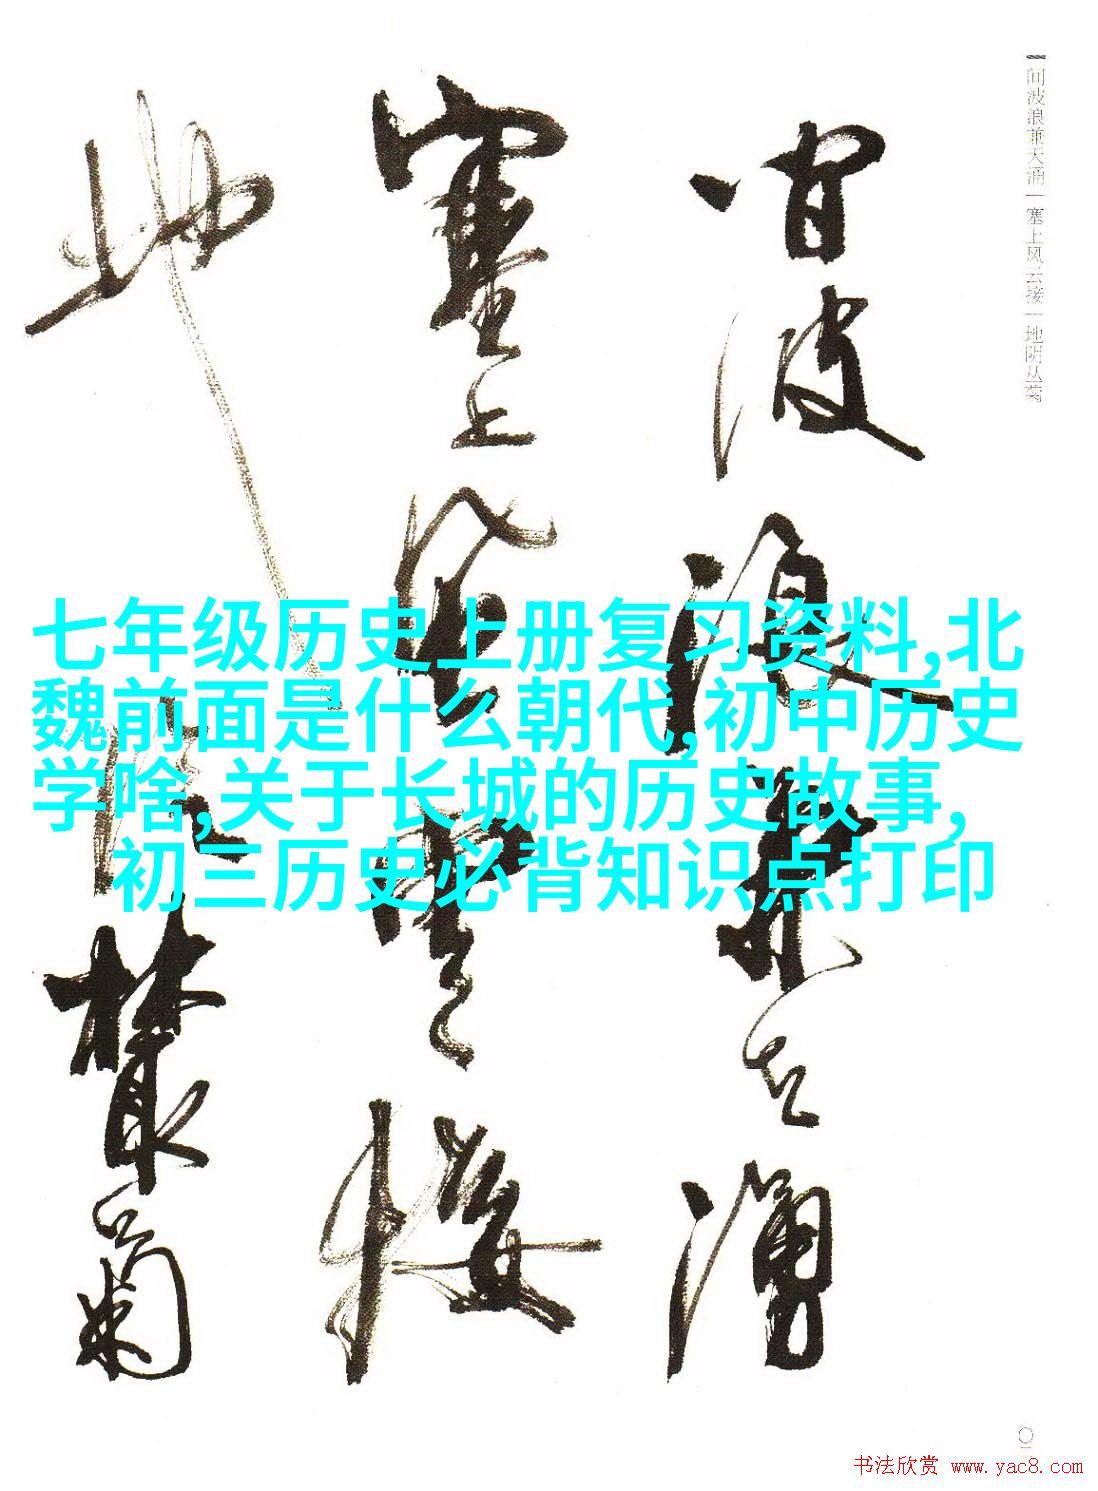 间波浪兼天涌｜塞上风云接｜地阴丛菊
间波浪兼天涌
塞上风云接
地阴丛菊
七年级历史上册复习资料,北
魏前面是什么朝代,初中历史
学啥,关于长城的历史故事,
初三历史必背知识点打印
书法欣赏 www.yac8.com